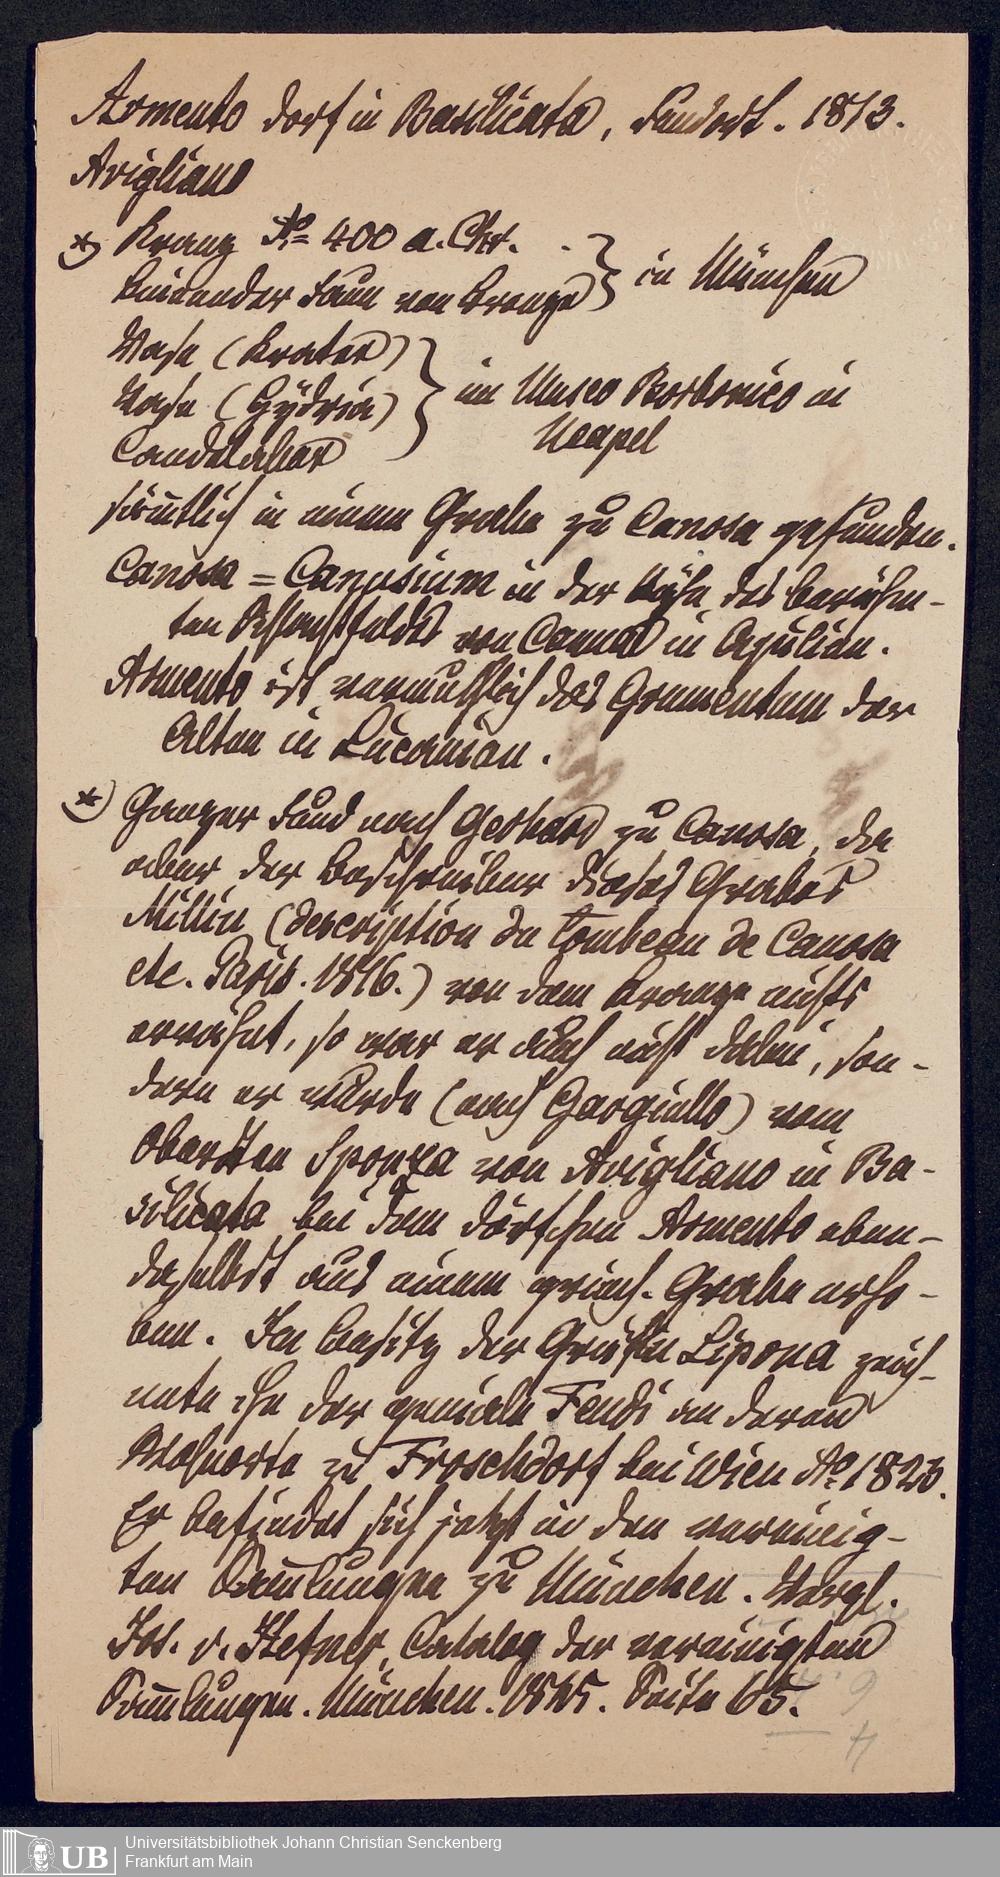 Armento Dorf in Basilicata, Fundort. 1813.
Avigliano
*) Kranz No= 400 a. Chr.
Knieender Faun von Bronze } in München
Vase (Krater)
Vase (Hÿdria) } im Museo Borbonico in
Candelaber Neapel
sämtlich in einem Grabe zu Canosa gefunden.
Canosa = Canusium in der Nähe des berühm-
ten Schlachtfeldes von Cannä in Apulien.
Armento ist vermuthlich das Grumentum der
Alten in Lucanien.
*) Ganzer Fund nach Gerhard zu Canosa, da
aber der Beschreiber dieses Grabes
Millin (description du tombeau de Canosa
etc. Paris. 1816.) von dem Kranze nichts
erwähnt, so war er auch nicht dabei, son-
dern er wurde (nach Gargiullo) vom
Obersten Sponza von Avigliano in Ba-
silicata bei dem Dörfchen Armento eben-
daselbst aus einem griech. Grabe erho-
ben. Im Besitz der Gräfin Lipona zeich-
nete ihn der geniale Fendi an deren
Wohnorte zu Froschdorf bei Wien Ao. 1823.
Er befindet sich jetzt in den vereinig-
ten Sammlungen zu München. Vergl.
Jos. v. Hefner, Catalog der vereinigten
Sammlungen. München. 1845. Seite 65.
UB
Universitätsbibliothek Johann Christian Senckenberg
Frankfurt am Main